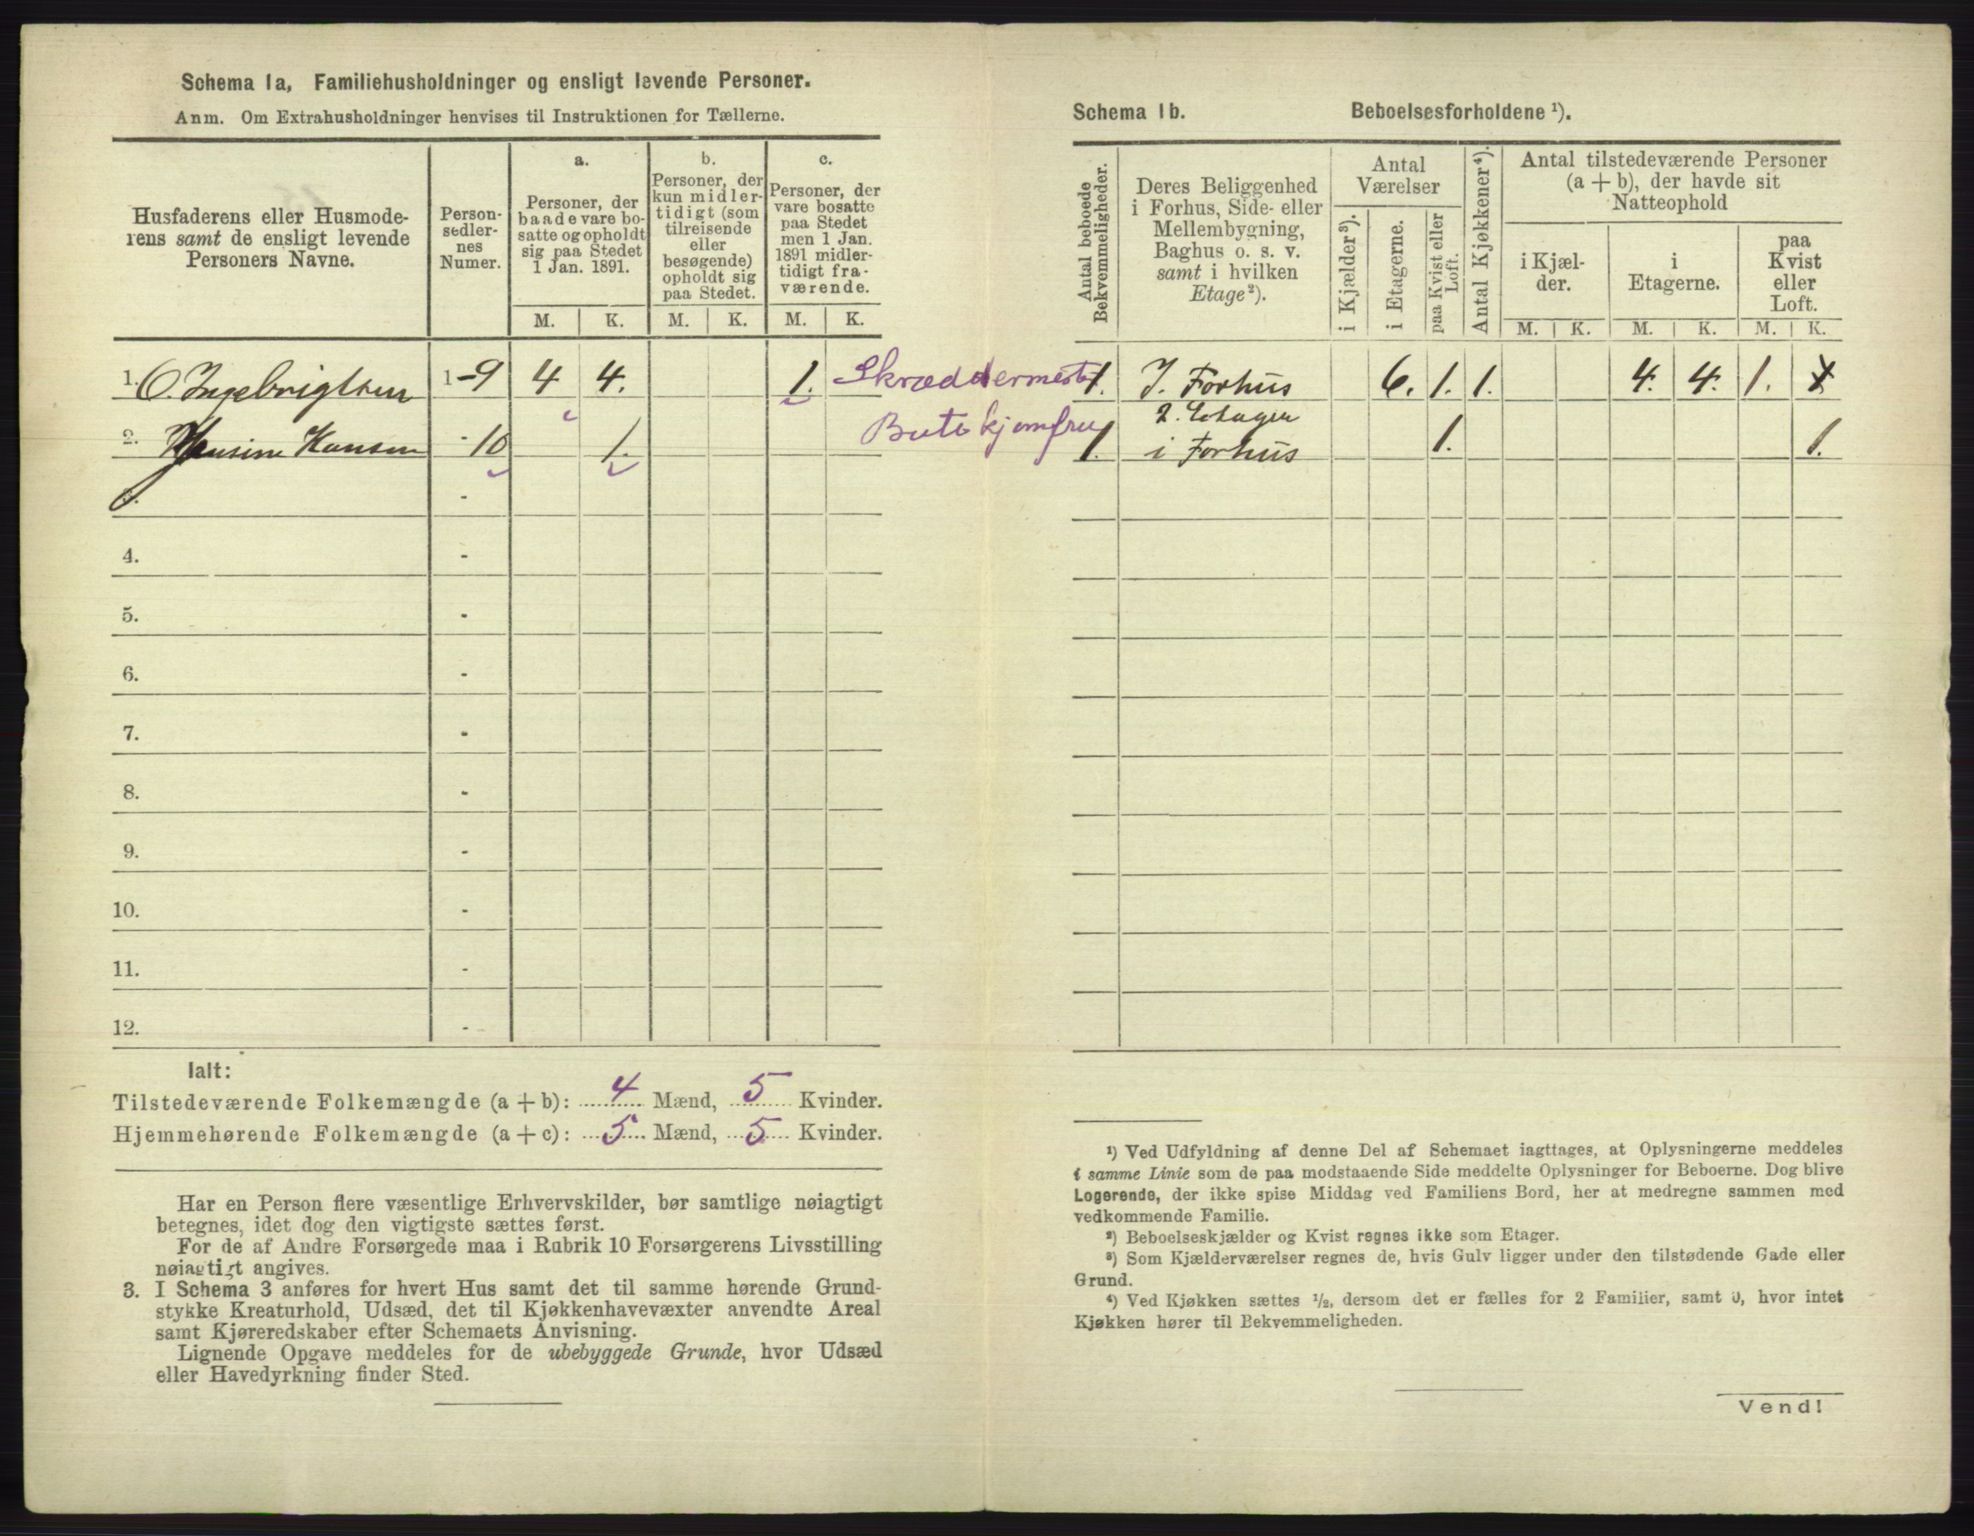 Schema 1a, Familiehusholdninger og ensligt levende Personer.
Anm. Om Extrahusholdninger henvises til Instruktionen for Tællerne.
Husfaderens eller Husmode-
rens samt de ensligt levende
Personers Navne.
Person-
sedler-
nes
Numer.
a.
Personer, der
baade vare bo-
satte og opholdt
sig paa Stedet
1 Jan. 1891.
b.
Personer, der
kun midler-
tidigt (som
tilreisende
eller
besøgende)
opholdt sig
paa Stedet.
c.
Personer, der
vare bosatte
paa Stedet
men 1 Jan.
1891 midler-
tidigt fra-
værende.
M. K. M. K. M. K.
1. O. Ingebrigtsen 1-9 4 4. 1. Skræddermester
2. Hansine Hansen - 10 1. Butikjomfru
3. -
4. -
5. -
6. -
7. -
8. -
9. -
10. -
11. -
12. -
Ialt:
Tilstedeværende Folkemængde (a + b): 4 Mænd, 5 Kvinder.
Hjemmehørende Folkemængde (a + c): 5 Mænd, 5 Kvinder.
Har en Person flere væsentlige Erhvervskilder, bør samtlige nøiagtigt
betegnes, idet dog den vigtigste sættes først.
For de af Andre Forsørgede maa i Rubrik 10 Forsørgerens Livsstilling
nøiagtigt angives.
3. I Schema 3 anføres for hvert Hus samt det til samme hørende Grund-
stykke Kreaturhold, Udsæd, det til Kjøkkenhavevæxter anvendte Areal
samt Kjøreredskaber efter Schemaets Anvisning.
Lignende Opgave meddeles for de ubebyggede Grunde, hvor Udsæd
eller Havedyrkning finder Sted.
Schema 1b. Beboelsesforholdene ¹).
Antal beboede
Bekvemmeligheder.
Deres Beliggenhed
i Forhus, Side- eller
Mellembygning,
Baghus o. s. v.
samt i hvilken
Etage²).
Antal
Værelser
i Kjælder³).
i Etagerne.
paa Kvist eller
Loft.
Antal Kjøkkener⁴).
Antal tilstedeværende Personer
(a + b), der havde sit
Natteophold
i Kjæl-
der.
i
Etagerne.
paa
Kvist
eller
Loft.
M. K. M. K. M. K.
1. I. Forhus 6. 1. 1. 4. 4. 1.
2. Etagen
1. i Forhus 1. 1.
¹) Ved Udfyldning af denne Del af Schemaet iagttages, at Oplysningerne meddeles
i samme Linie som de paa modstaaende Side meddelte Oplysninger for Beboerne. Dog blive
Logerende, der ikke spise Middag ved Familiens Bord, her at medregne sammen med
vedkommende Familie.
²) Beboelseskjælder og Kvist regnes ikke som Etager.
³) Som Kjælderværelser regnes de, hvis Gulv ligger under den tilstødende Gade eller
Grund.
⁴) Ved Kjøkken sættes ½, dersom det er fælles for 2 Familier, samt 0, hvor intet
Kjøkken hører til Bekvemmeligheden.
Vend!